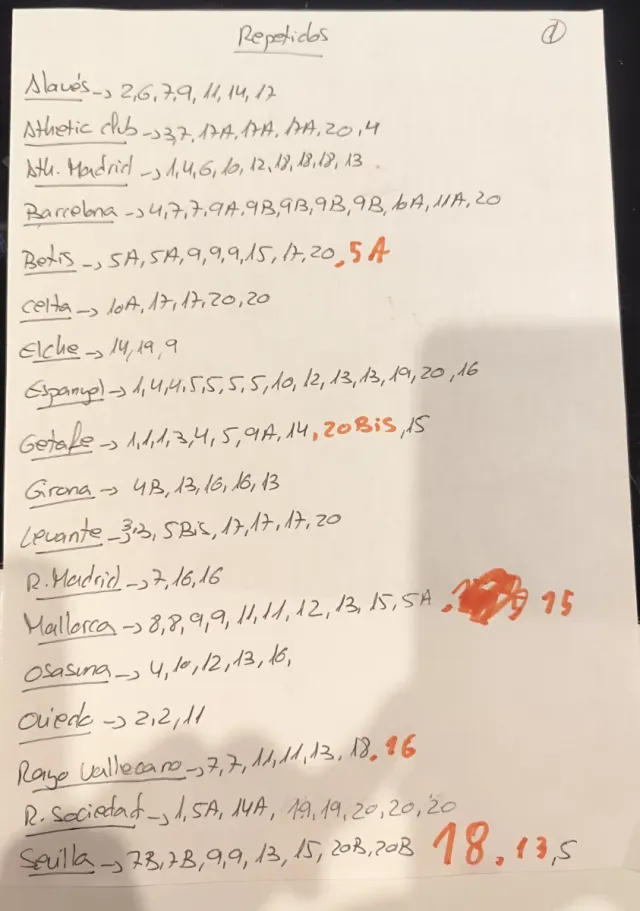 Repetidos
1
Alavés → 2,6,7,9,11,14,17
Athetic club → 3,7,17A,17A,17A,20,4
Ath. Madrid → 1,4,6,10,12,18,18,18,13
Barcelona → 4,7,7,9A,9B,9B,9B,9B,10A,11A,20
Betis → 5A,5A,9,9,9,15,17,20,5A
Celta → 10A,17,17,20,20
Elche → 14,19,9
Espanyol → 1,4,4,5,5,5,5,10,12,13,13,19,20,16
Getafe → 1,1,1,3,4,5,9A,14,20Bis,15
Girona → 4B,13,16,16,13
Levante → 3,3,5Bis,17,17,17,20
R.Madrid → 7,16,16
Mallorca → 8,8,9,9,11,11,12,13,15,5A, 15
Osasuna → 4,10,12,13,16,
Oviedo → 2,2,11
Rayo Vallecano → 7,7,11,11,13,18,16
R. Sociedad → 1,5A,14A,19,19,20,20,20
Sevilla → 7B,7B,9,9,13,15,20B,20B 18,13,5